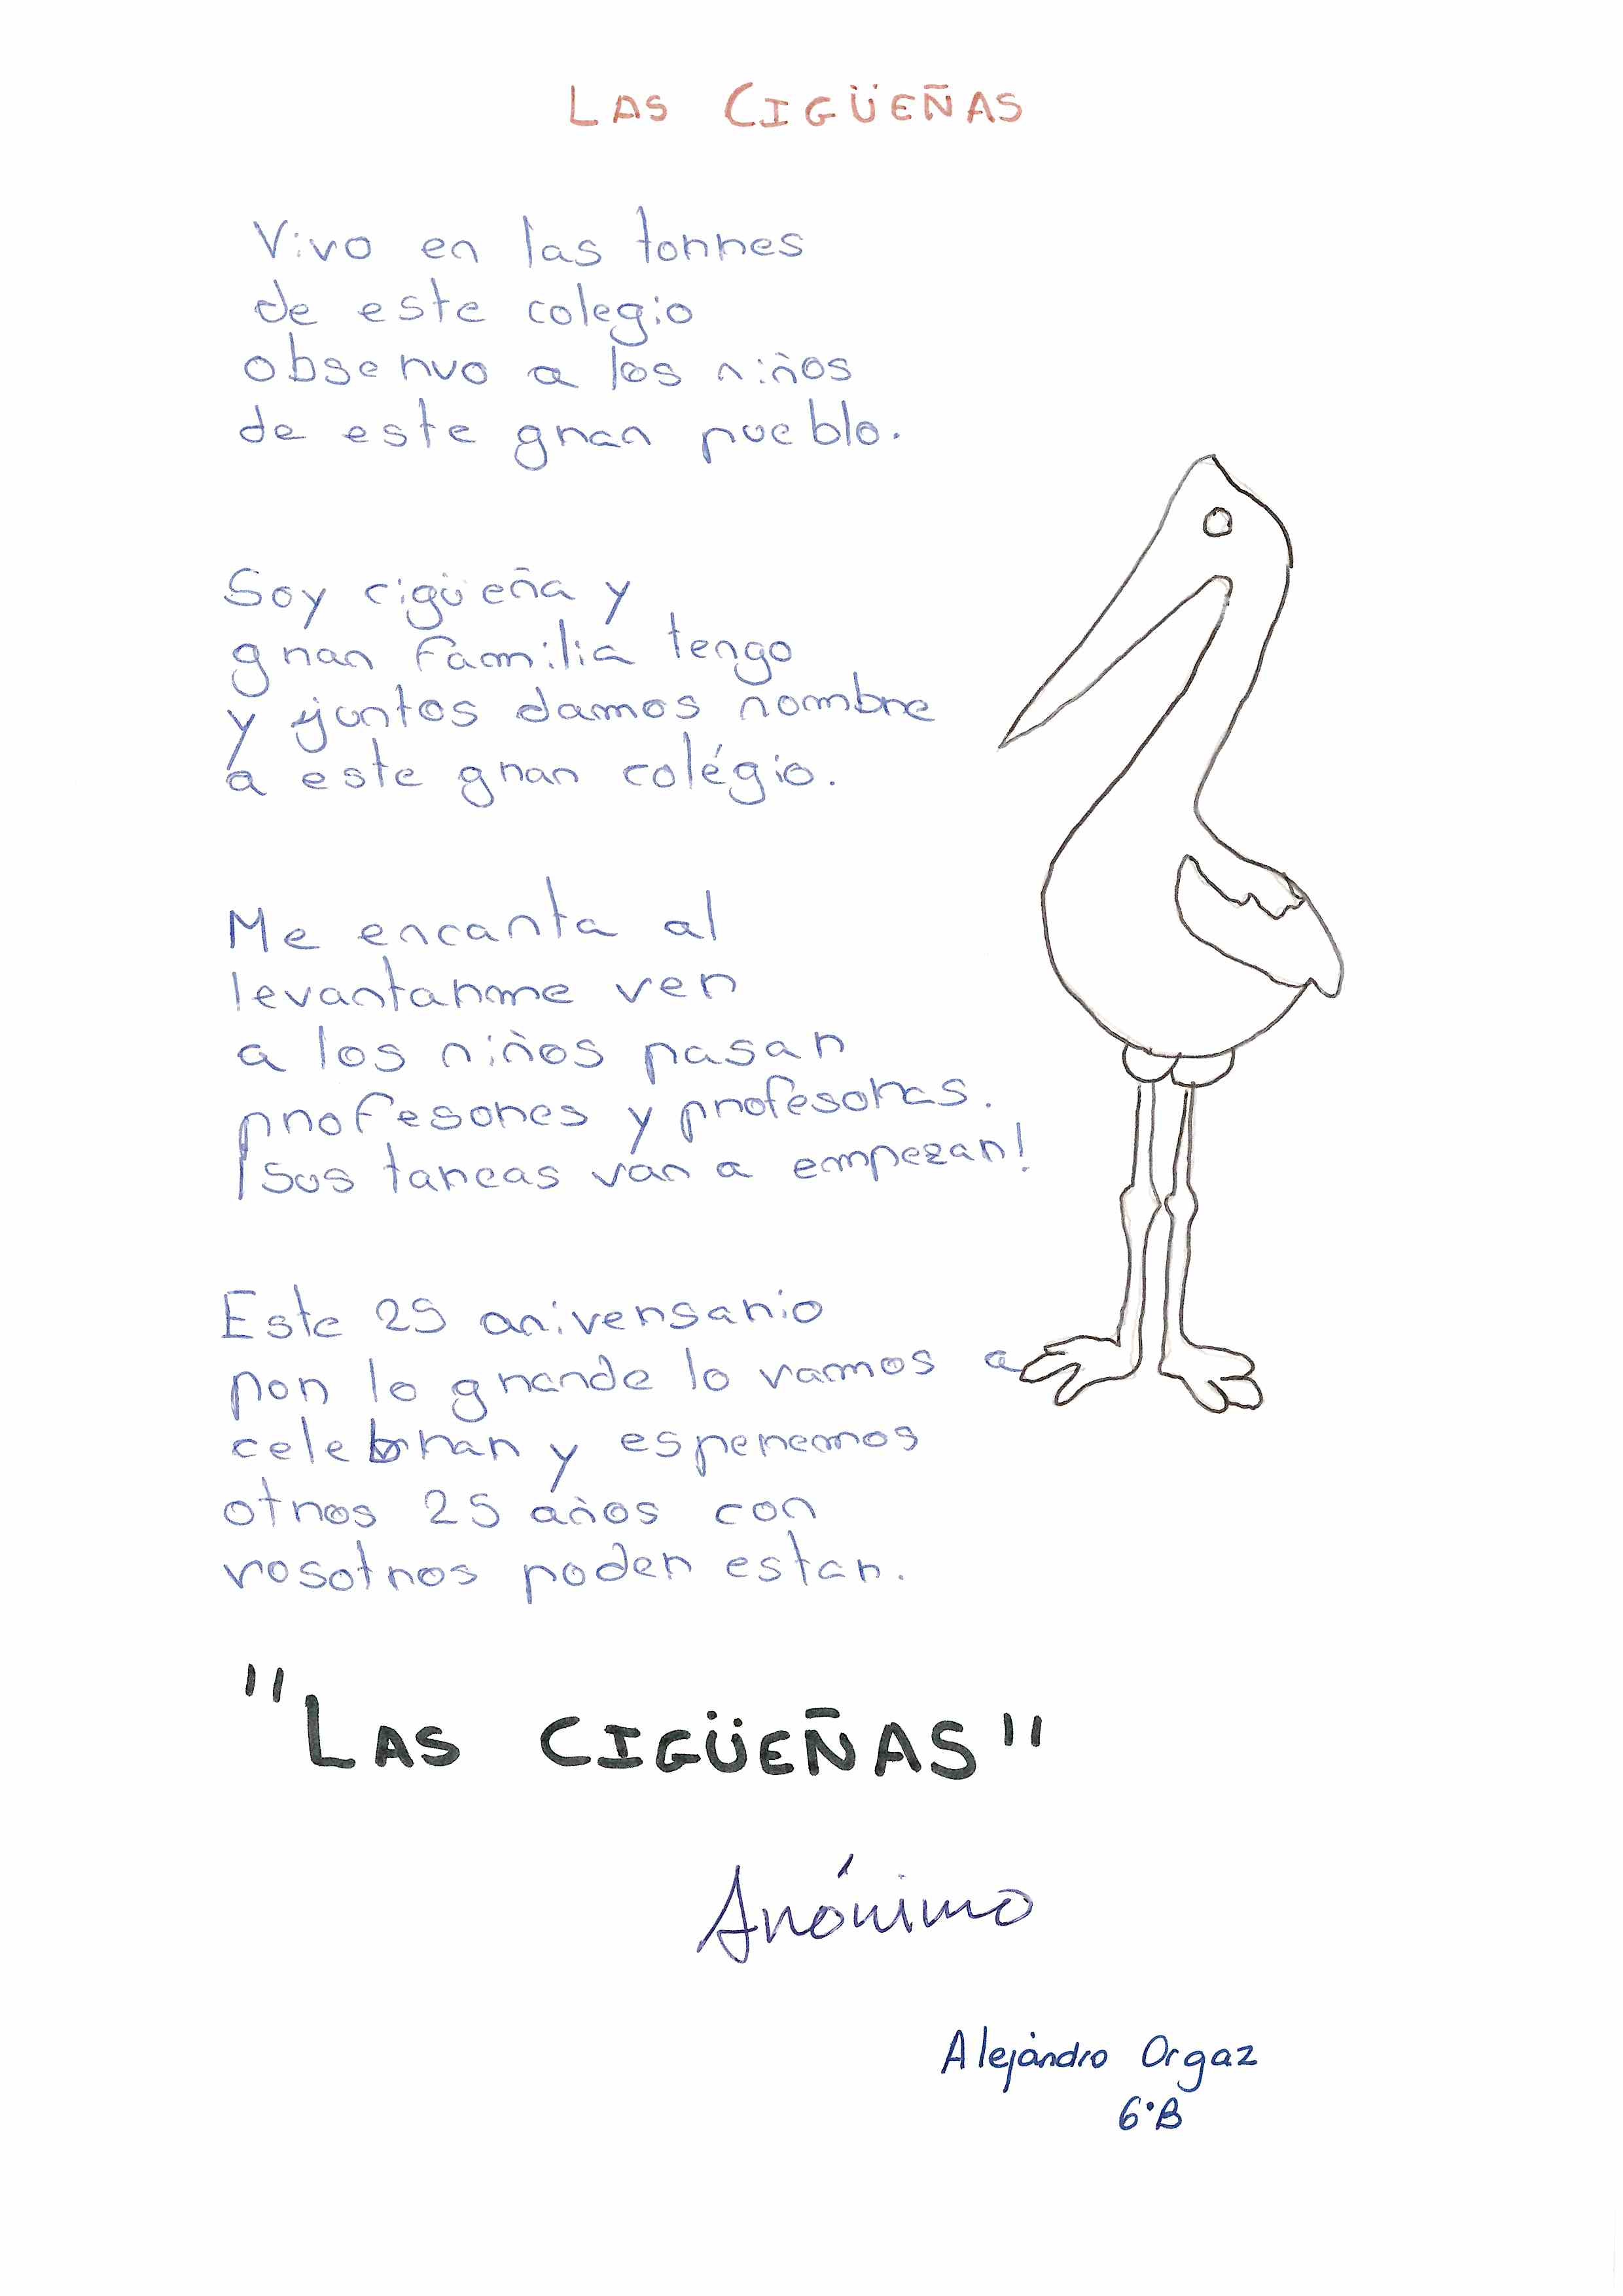 LAS CIGÜEÑAS
Vivo en las torres
de este colegio
observo a los niños
de este gran pueblo.
Soy cigüeña y
gran familia tengo
y juntos damos nombre
a este gran colégio.
Me encanta al
levantarme ver
a los niños pasar
profesores y profesoras.
¡Sus tareas van a empezar!
Este 25 aniversario
por lo grande lo vamos a
celebrar y esperemos
otros 25 años con
vosotros poder estar.
"LAS CIGÜEÑAS"
Anónimo
Alejandro Orgaz
6ºB